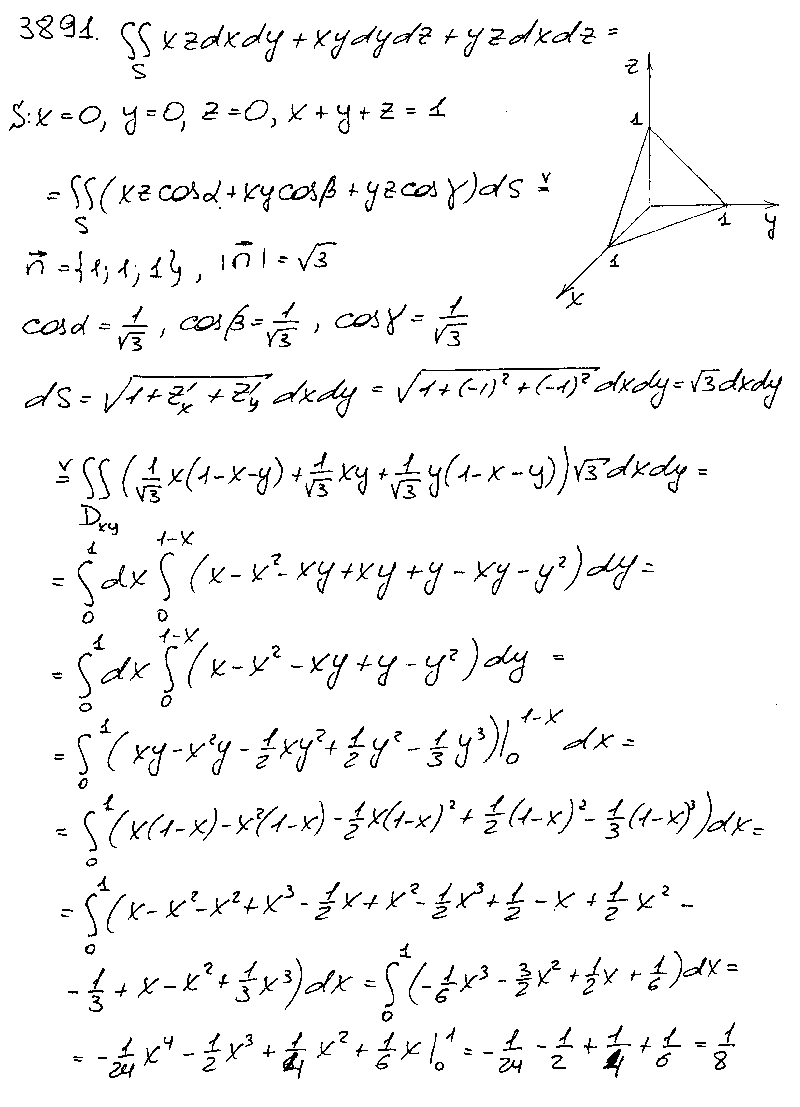 3891. ∬_S xzdxdy + xydydz + yzdxdz =
S: x = 0, y = 0, z = 0, x + y + z = 1
z
1
1
y
1
x
= ∬_S (xz cosα + xy cosβ + yz cosγ) dS =^v
n⃗ = {1; 1; 1}, |n⃗| = √3
cosα = 1/√3, cosβ = 1/√3, cosγ = 1/√3
dS = √(1 + z'_x + z'_y) dxdy = √(1 + (-1)² + (-1)²) dxdy = √3 dxdy
=^v ∬_{D_xy} (1/√3 x(1-x-y) + 1/√3 xy + 1/√3 y(1-x-y)) √3 dxdy =
= ∫_0^1 dx ∫_0^{1-x} (x - x² - xy + xy + y - xy - y²) dy =
= ∫_0^1 dx ∫_0^{1-x} (x - x² - xy + y - y²) dy =
= ∫_0^1 (xy - x²y - 1/2 xy² + 1/2 y² - 1/3 y³)|_0^{1-x} dx =
= ∫_0^1 (x(1-x) - x²(1-x) - 1/2 x(1-x)² + 1/2 (1-x)² - 1/3 (1-x)³) dx =
= ∫_0^1 (x - x² - x² + x³ - 1/2 x + x² - 1/2 x³ + 1/2 - x + 1/2 x² -
- 1/3 + x - x² + 1/3 x³) dx = ∫_0^1 (-1/6 x³ - 3/2 x² + 1/2 x + 1/6) dx =
= -1/24 x⁴ - 1/2 x³ + 1/4 x² + 1/6 x |_0^1 = -1/24 - 1/2 + 1/4 + 1/6 = 1/8